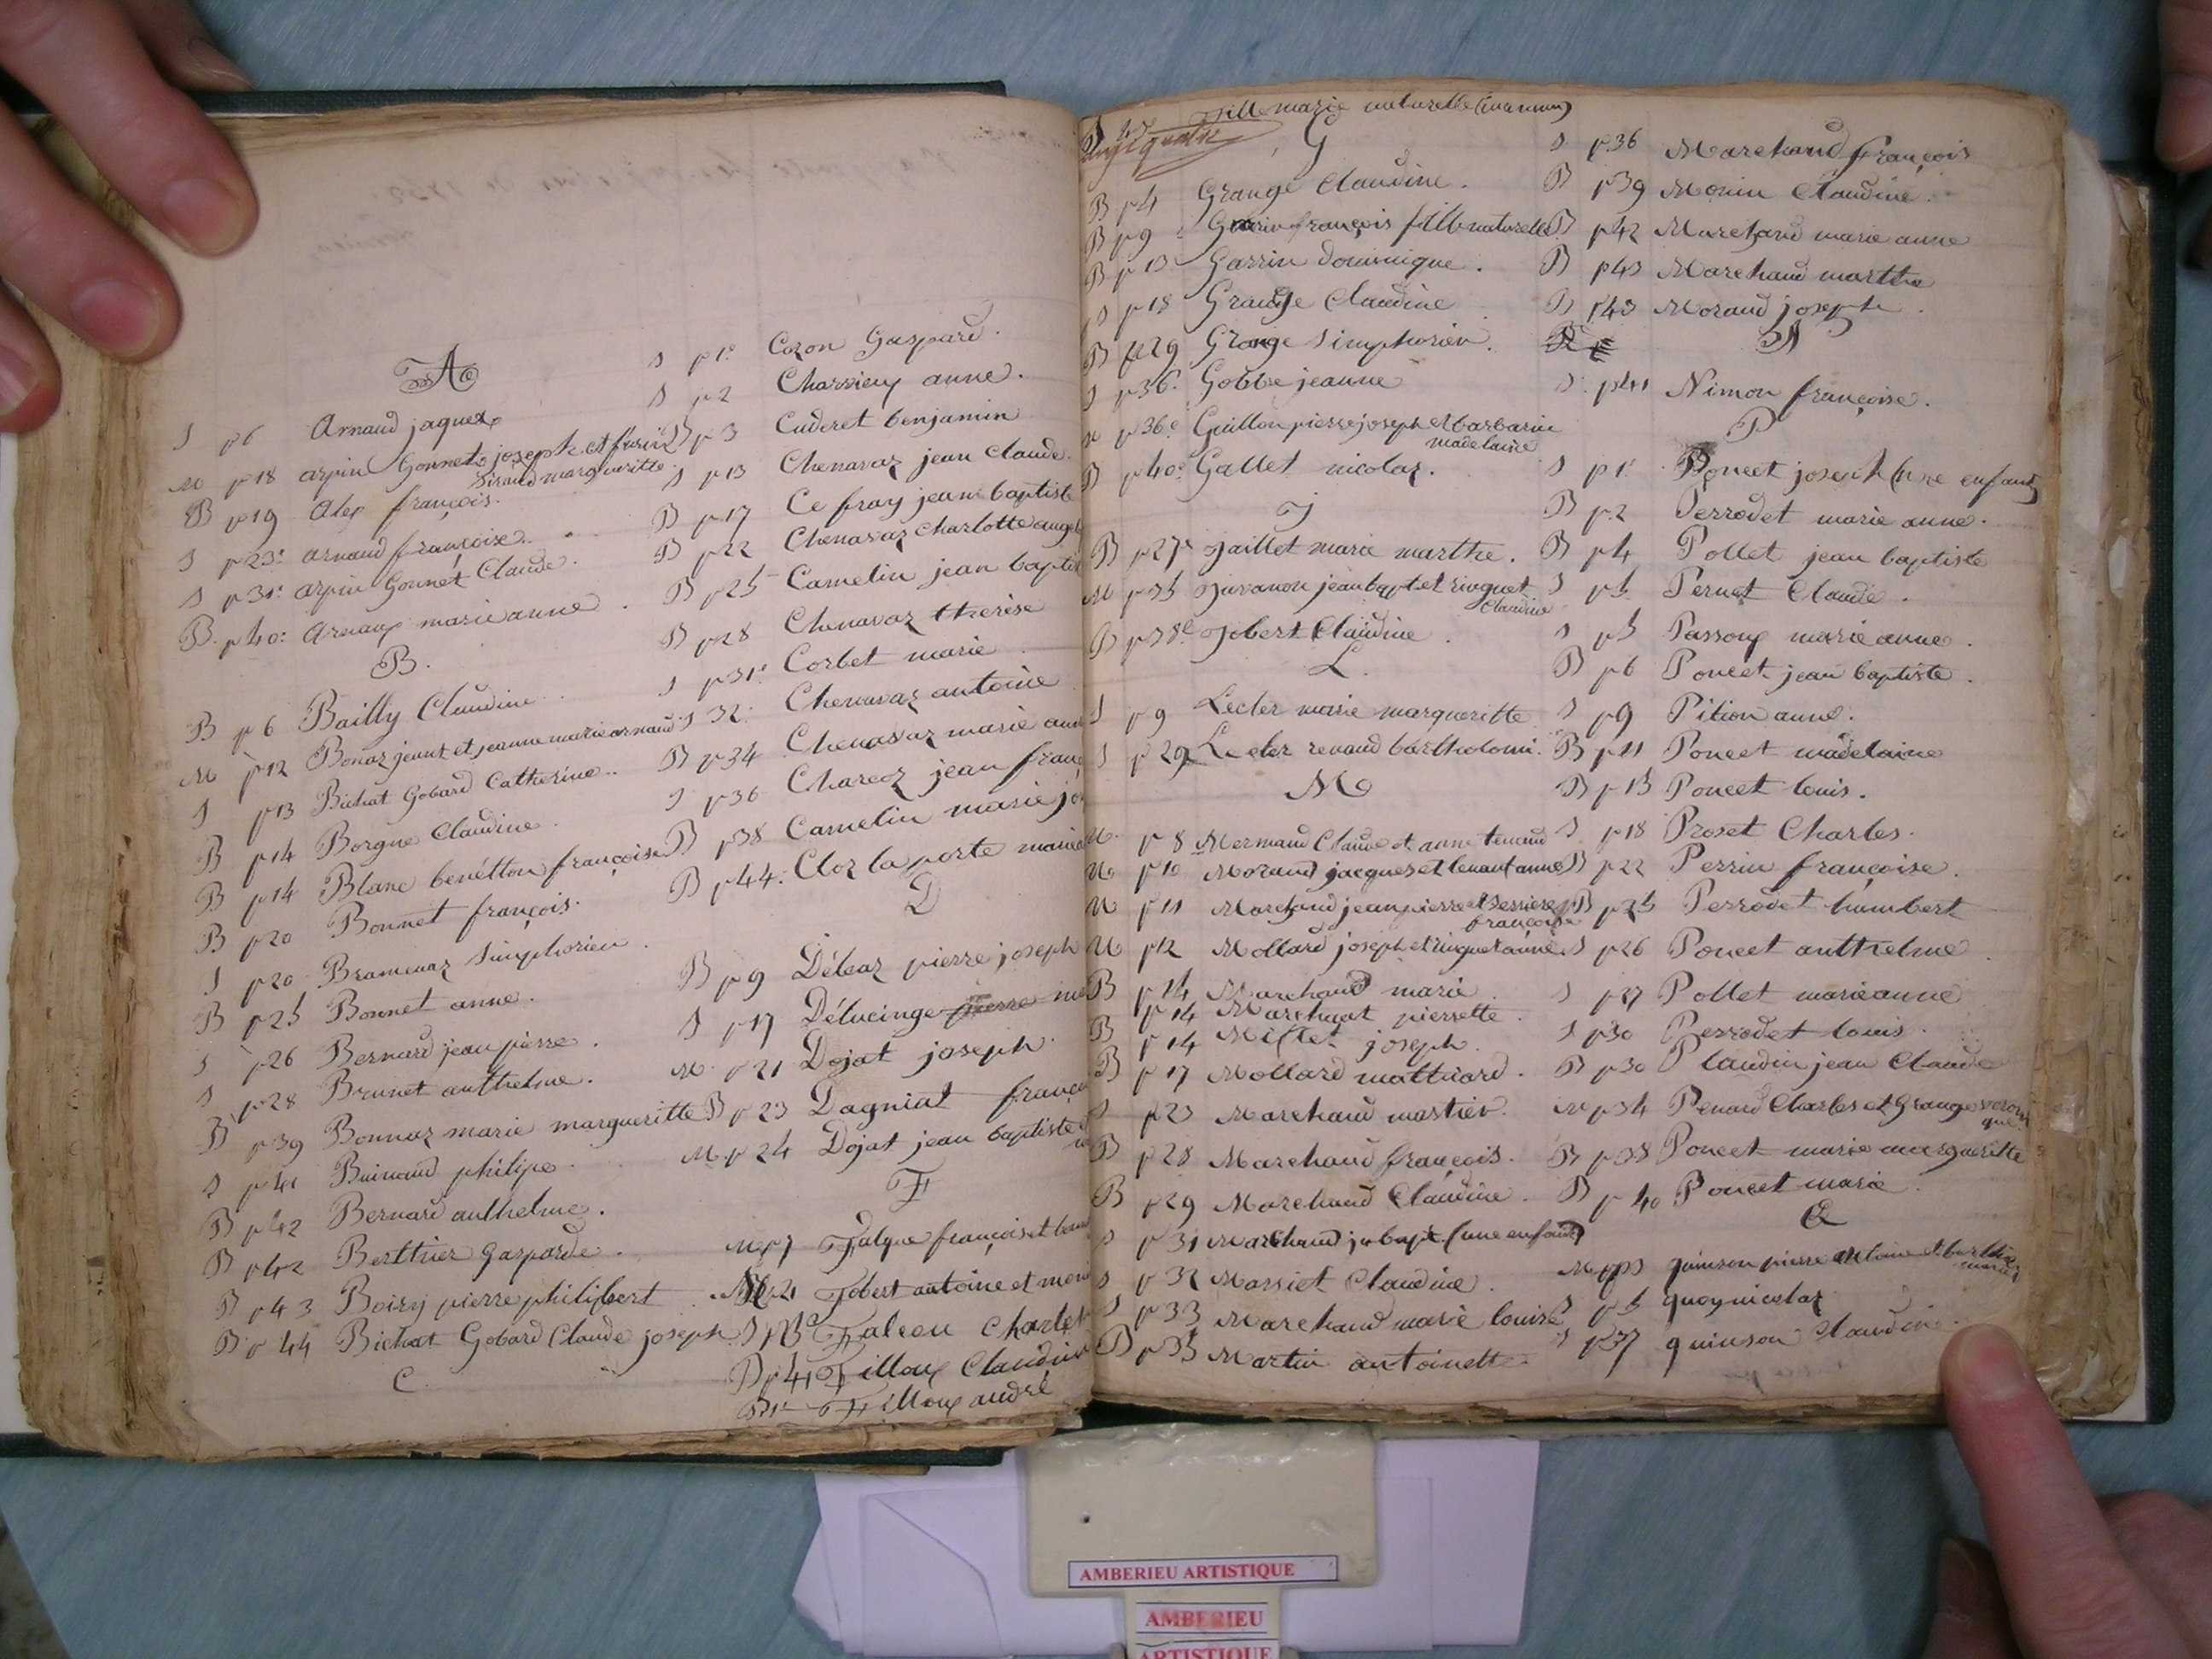 A
S p6 Arnaud jaques
M p18 arpin Gonnet joseph et
Siraud margueritte
B p19 Alex françois.
S p23 arnaud françoise.
S p31 arpin Gonnet Claude.
B p40 Arnaux marie anne
B.
B p6 Bailly Claudine
M p12 Bonaz jeunet et jeanne marie arnaud
S p13 Bichat Gobard Catherine.
B p14 Borgne Claudine
B p14 Blanc benétton françoise
B p20 Bonnet françois.
S p20 Bramenaz Simphorien
B p25 Bonnet anne.
S p26 Bernard jean pierre.
S p28 Brunet anthelme.
B p39 Bonnaz marie margueritte
S p41 Buinaud philipe
B p42 Bernard anthelme.
B p42 Berthier Gasparde.
B p43 Boiry pierre philibert
B p44 Bichat Gobard Claude joseph
C
S p1 Cozon Gaspard.
S p2 Charrieux anne.
B p3 Cuderet benjamin
S p13 Chenavaz jean Claude.
B p17 Ce fray jean baptiste
B p22 Chenavaz Charlotte
B p25 Camelin jean
B p28 Chenavaz therèse
S p31 Corbet marie
S 32 Chenavaz antoine
B p34 Chenavaz marie
S p36 Charcoz jean
B p38 Camelin marie
B p44. Cloz la porte
D
B p9 Déleaz pierre joseph
S p17 Délucinge pierre
M p21 Dojat joseph.
B p23 Dagniat
M p24 Dojat jean baptiste
F
M p7 Falque françois et
M p21 Fobert antoine et
S Falcou
B p41 Filloux Claudine
Filloux andré
fille marie naturelle
G
B p4 Grange Claudine.
B p9 françois fille naturelle
B p13 Garrin dominique.
S p18 Grange Claudine
B p29 Grange Simphorien.
S p36 Gobbe jeanne
M p36 Guillon pierre joseph et barbarin
madelaine
B p40 Gallet nicolaz.
J
B p27 Jaillet marie marthe.
M p35 Juvanon jean bapt et ringuet
Claudine
B p38 Jobert Claudine
L.
S p9 Lecler marie margueritte
S p29 Lecler renaud bartholomi.
M
M p8 Mermand Claude et anne tenand
M p10 Morand jacques et tenant anne
M p11 Marchand jean pierre et
françoise
M p12 Mollard joseph et ringuet anne
B p14 Marchand marie
p14 Marchant pierrette.
B p14 Millet joseph
B p17 Mollard
S p23 Marchand mastier.
B p28 Marchand françois.
B p29 Marchand Claudine.
S p31 Marchand j bapt (une enfant)
S p32 Massiet Claudine.
S p33 Marchand marie louise
B p35 Martin antoinette
S p36 Marchand françois
B p39 Monin Claudine.
B p42 Marchand marie anne
B p43 Marchand marthe
B p43 Morand joseph.
N
S p41 Nimon françoise.
P
S p1 Poncet joseph (une enfant)
B p2 Perrodet marie anne.
B p4 Pollet jean baptiste
S p5 Pernet Claude.
S p5 Passoux marie anne.
B p6 Poncet jean baptiste.
S p9 Pition anne.
B p11 Poncet madelaine
B p13 Poncet louis.
S p18 Proset Charles.
B p22 Perrin françoise.
B p25 Perrodet humbert
S p26 Poncet anthelme
S p27 Pollet marie anne
S p30 Perrodet louis.
B p30 Plaudin jean Claude
M p34 Penard Charles et Grange veroni
que
B p38 Poncet marie margueritte
B p40 Poncet marie.
Q
M quinson pierre
S p5 quoy nicolaz
S p37 quinson Claudine.
AMBERIEU ARTISTIQUE
AMBERIEU
ARTISTIQUE